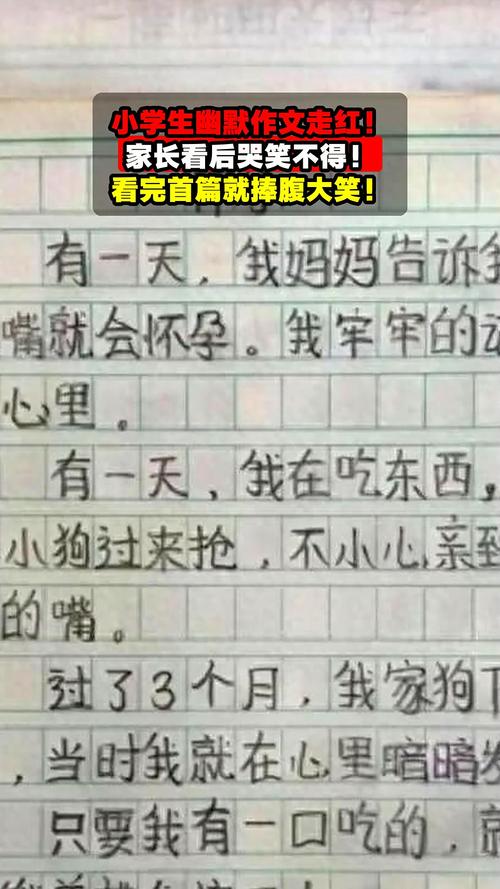 小学生幽默作文走红！
家长看后哭笑不得！
看完首篇就捧腹大笑！
有一天，我妈妈告诉我
嘴就会怀孕。我牢牢的
心里。
有一天，我在吃东西，
小狗过来抢，不小心亲到
的嘴。
过了3个月，我家狗下
，当时我就在心里暗暗发
只要我有一口吃的，就